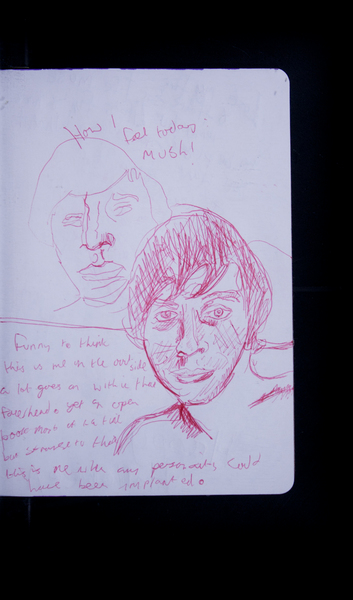 How I feel today.
MUSH!
Funny to think
this is me in the out side
a lot goes on within that
forehead. Yet an open
book most of
but to that
this is me with any personality could
have been implanted.